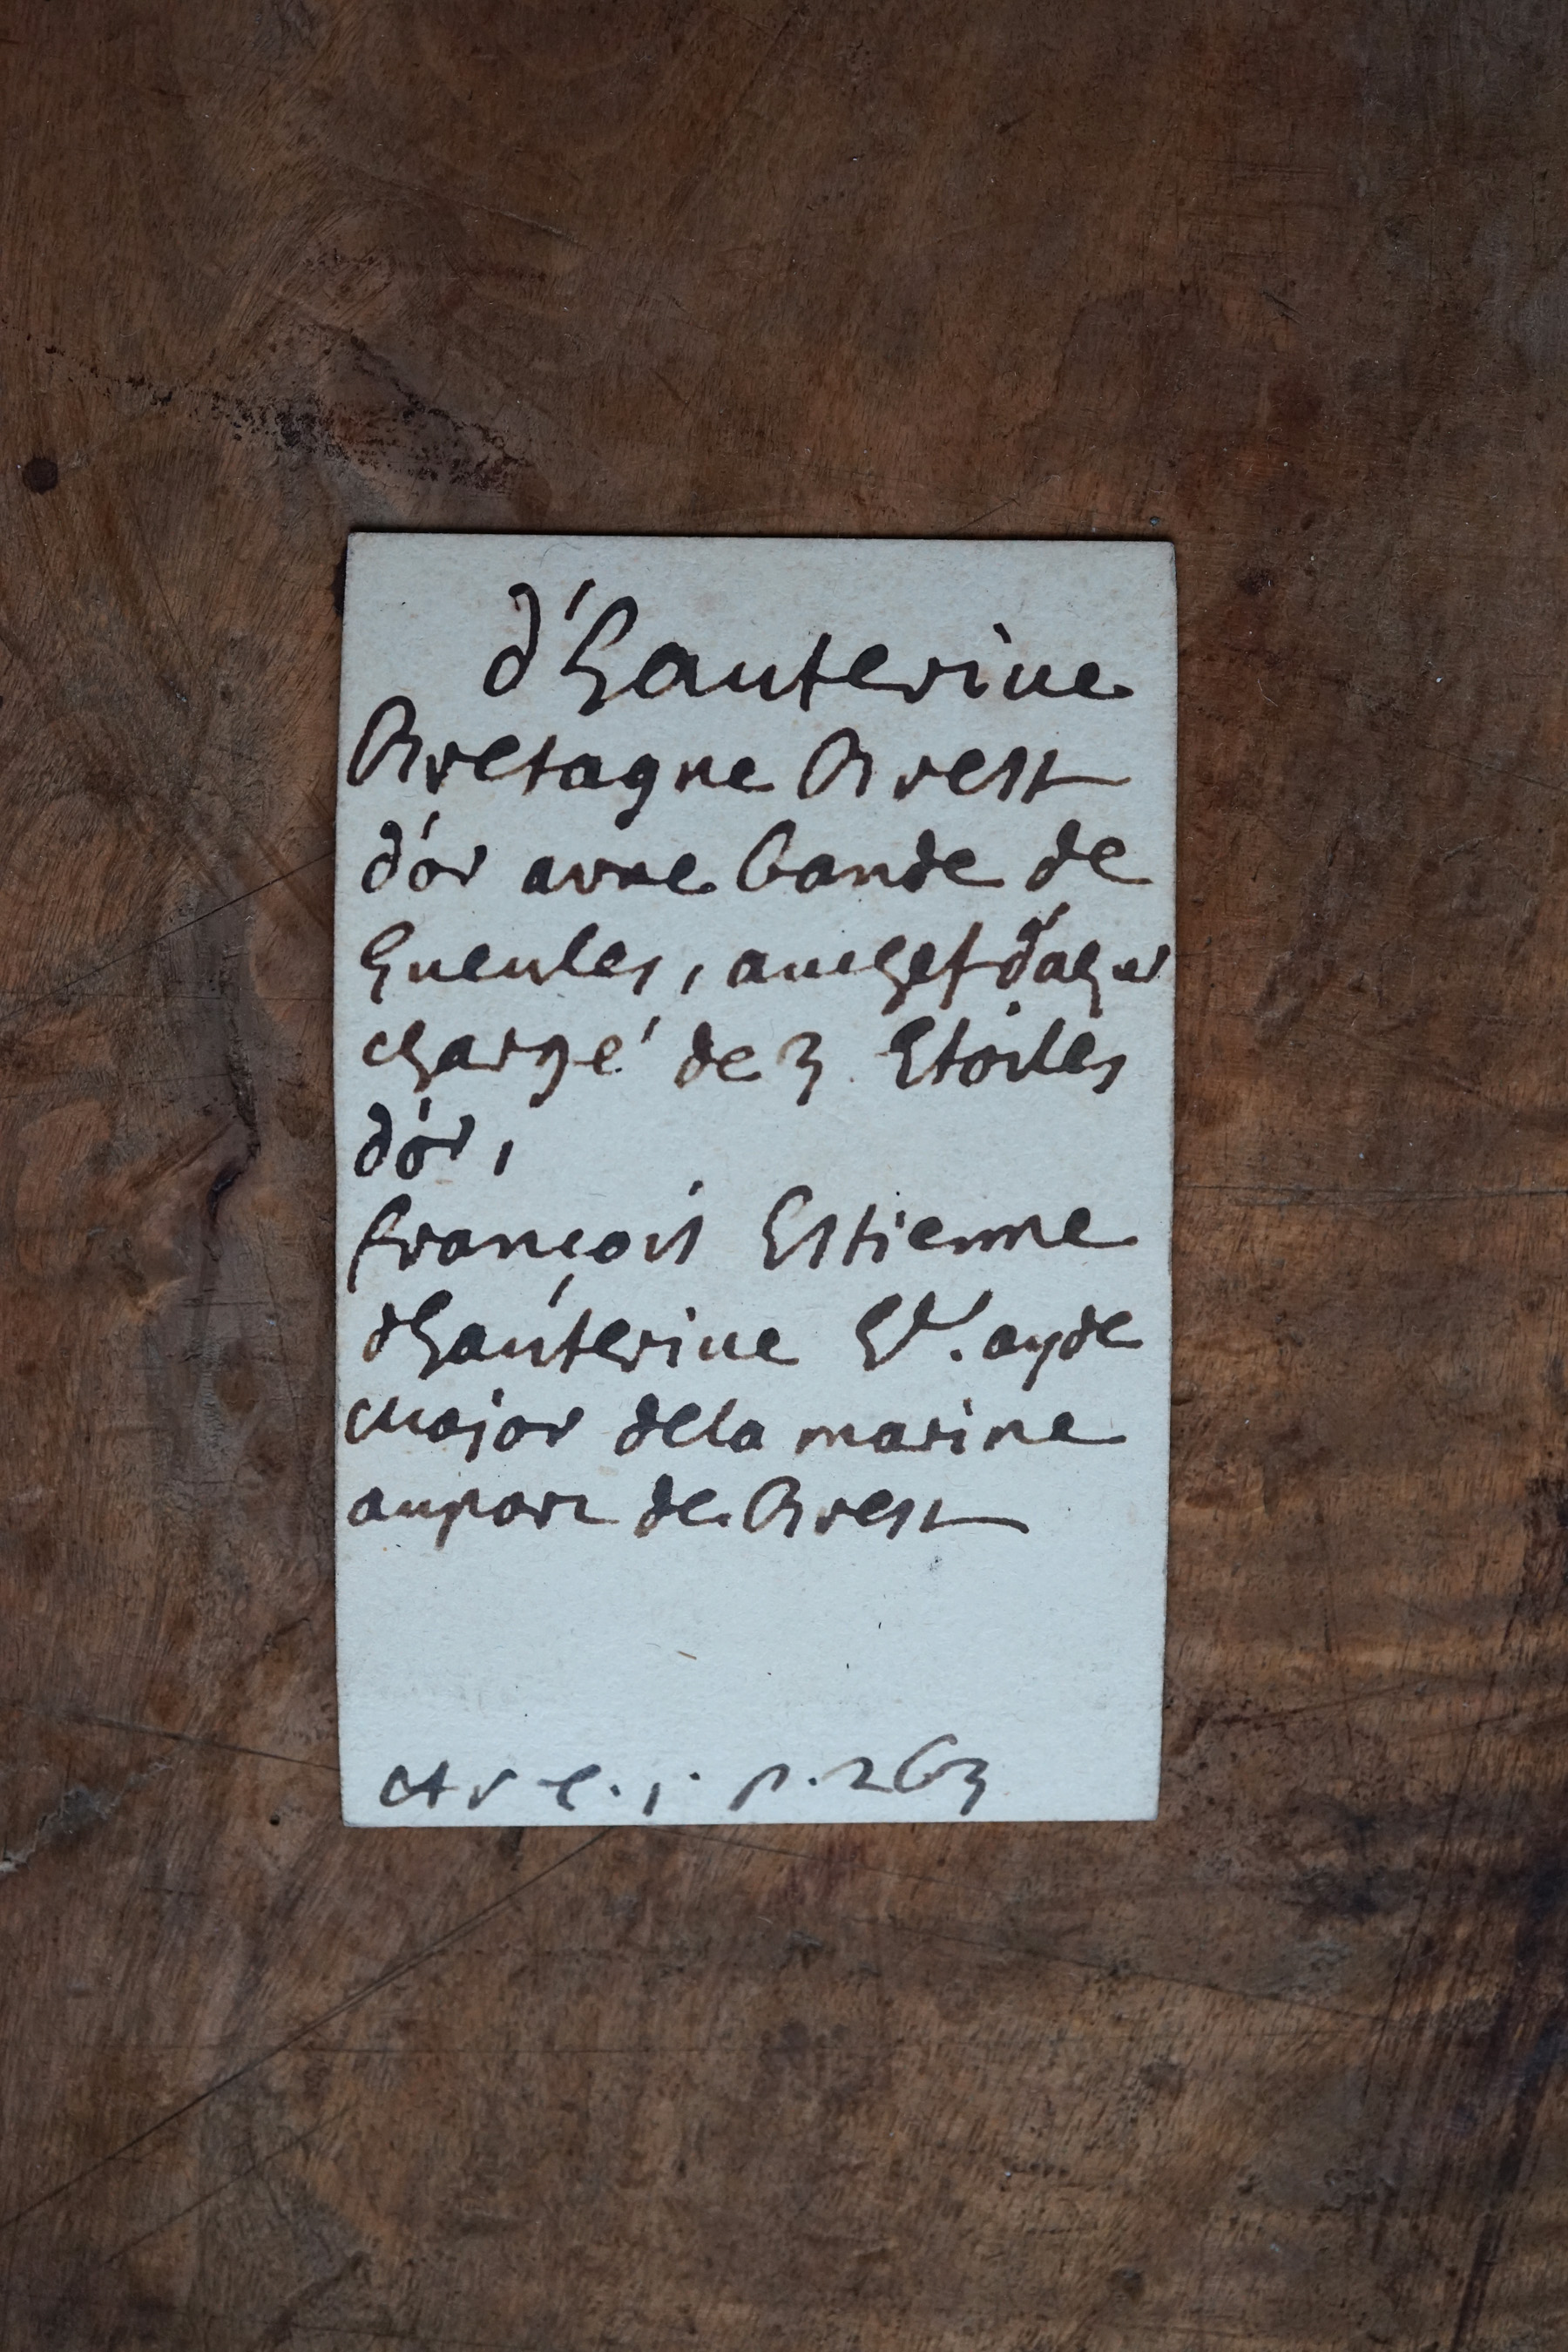 d'hauterive
Bretagne Brest
d'or avne bande de
gueules, auchef d'azur
chargé de 3 Etoiles
d'or,
françois Estienne
d'hauterive Er. ayde
major dela marine
auport de Brest
Ar c. 1. p. 263